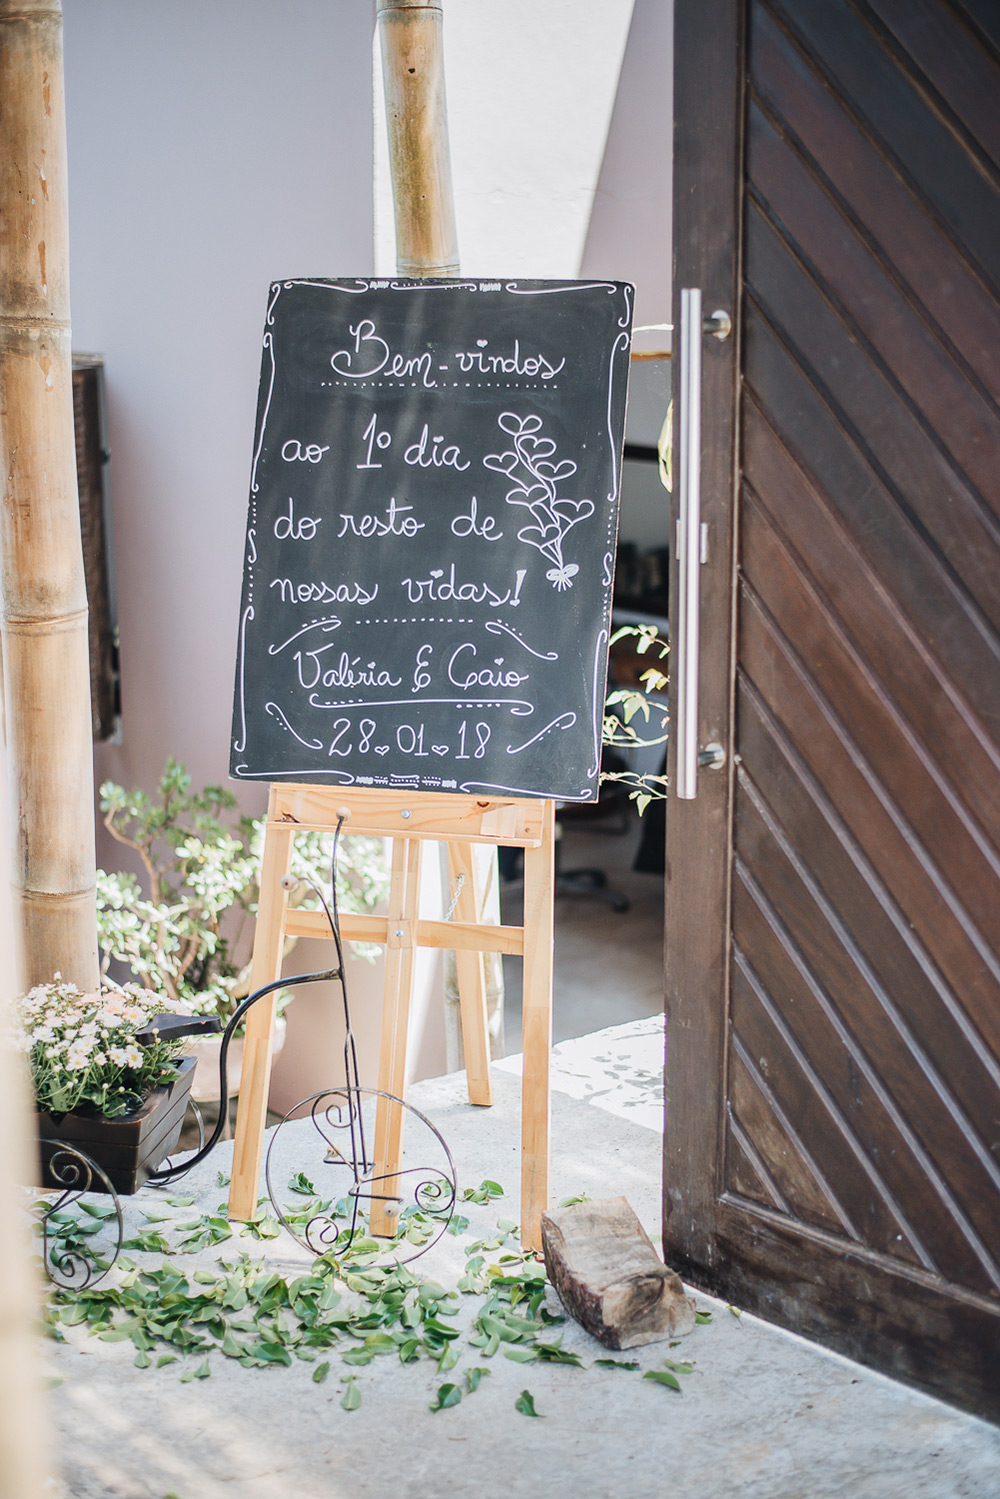 Bem-vindos
ao 1º dia
do resto de
nossas vidas!
Valéria & Caio
28.01.18